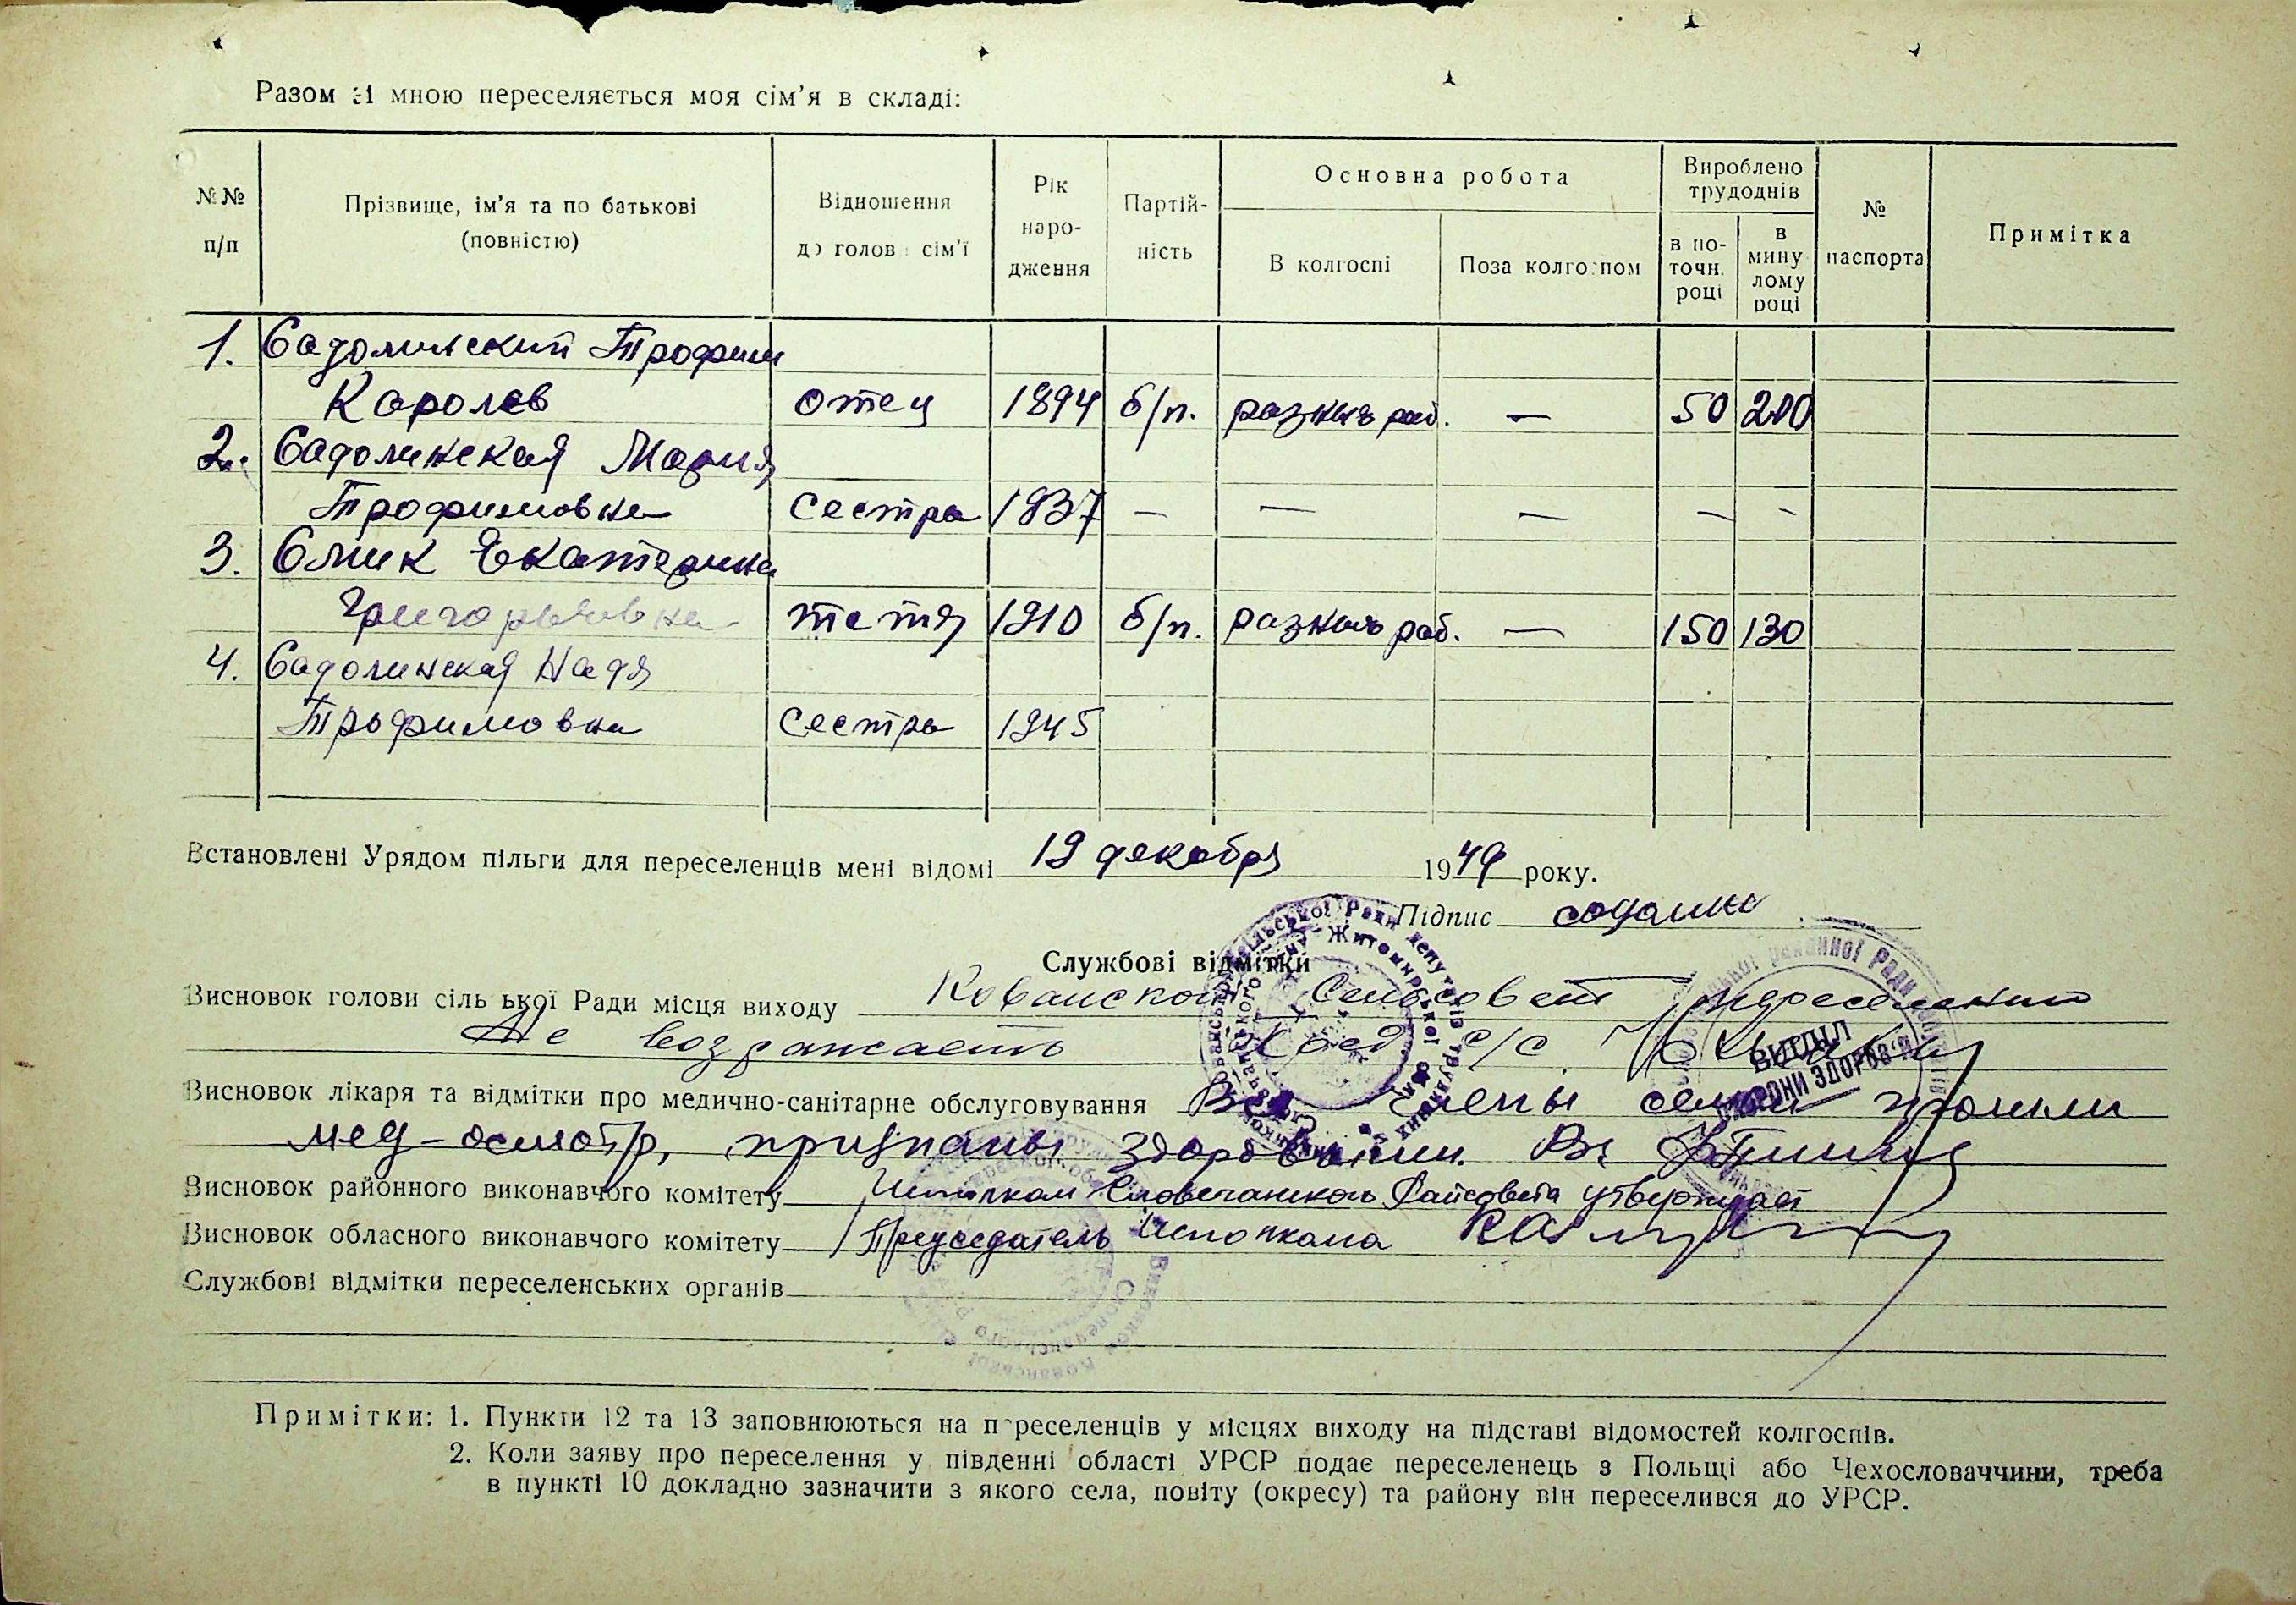 Разом зі мною переселяється моя сім'я в складі:
№№ п/п
Прізвище, ім'я та по батькові (повністю)
Відношення до голови сім'ї
Рік народження
Партійність
Основна робота
В колгоспі
Поза колгоспом
Вироблено трудоднів
в поточн. році
в минулому році
№ паспорта
Примітка
1. Садолинский Трофим
Каролев отец 1894 б/п. разных раб. — 50 200
2. Садолинская Мария
Трофимовна сестра 1937 — — — — -
3. Смик Екатерина
Григорьевна тетя 1910 б/п. разных раб. — 150 130
4. Садолинская Надя
Трофимовна сестра 1945
Встановлені Урядом пільги для переселенців мені відомі 19 декабря 1949 року.
Підпис
Службові відмітки
Висновок голови сільської Ради місця виходу Кованский Сельсовет переселению
Не возражает с/с
Висновок лікаря та відмітки про медично-санітарне обслуговування Все члены семьи прошли
мед-осмотр, признаны здоровыми.
Висновок районного виконавчого комітету Исполком Словечанского Райсовета утверждает
Висновок обласного виконавчого комітету Председатель Исполкома
Службові відмітки переселенських органів
ВІДДІЛ
ОХОРОНИ ЗДОРОВ'Я
Примітки: 1. Пункти 12 та 13 заповнюються на переселенців у місцях виходу на підставі відомостей колгоспів.
2. Коли заяву про переселення у південні області УРСР подає переселенець з Польщі або Чехословаччини, треба
в пункті 10 докладно зазначити з якого села, повіту (окресу) та району він переселився до УРСР.